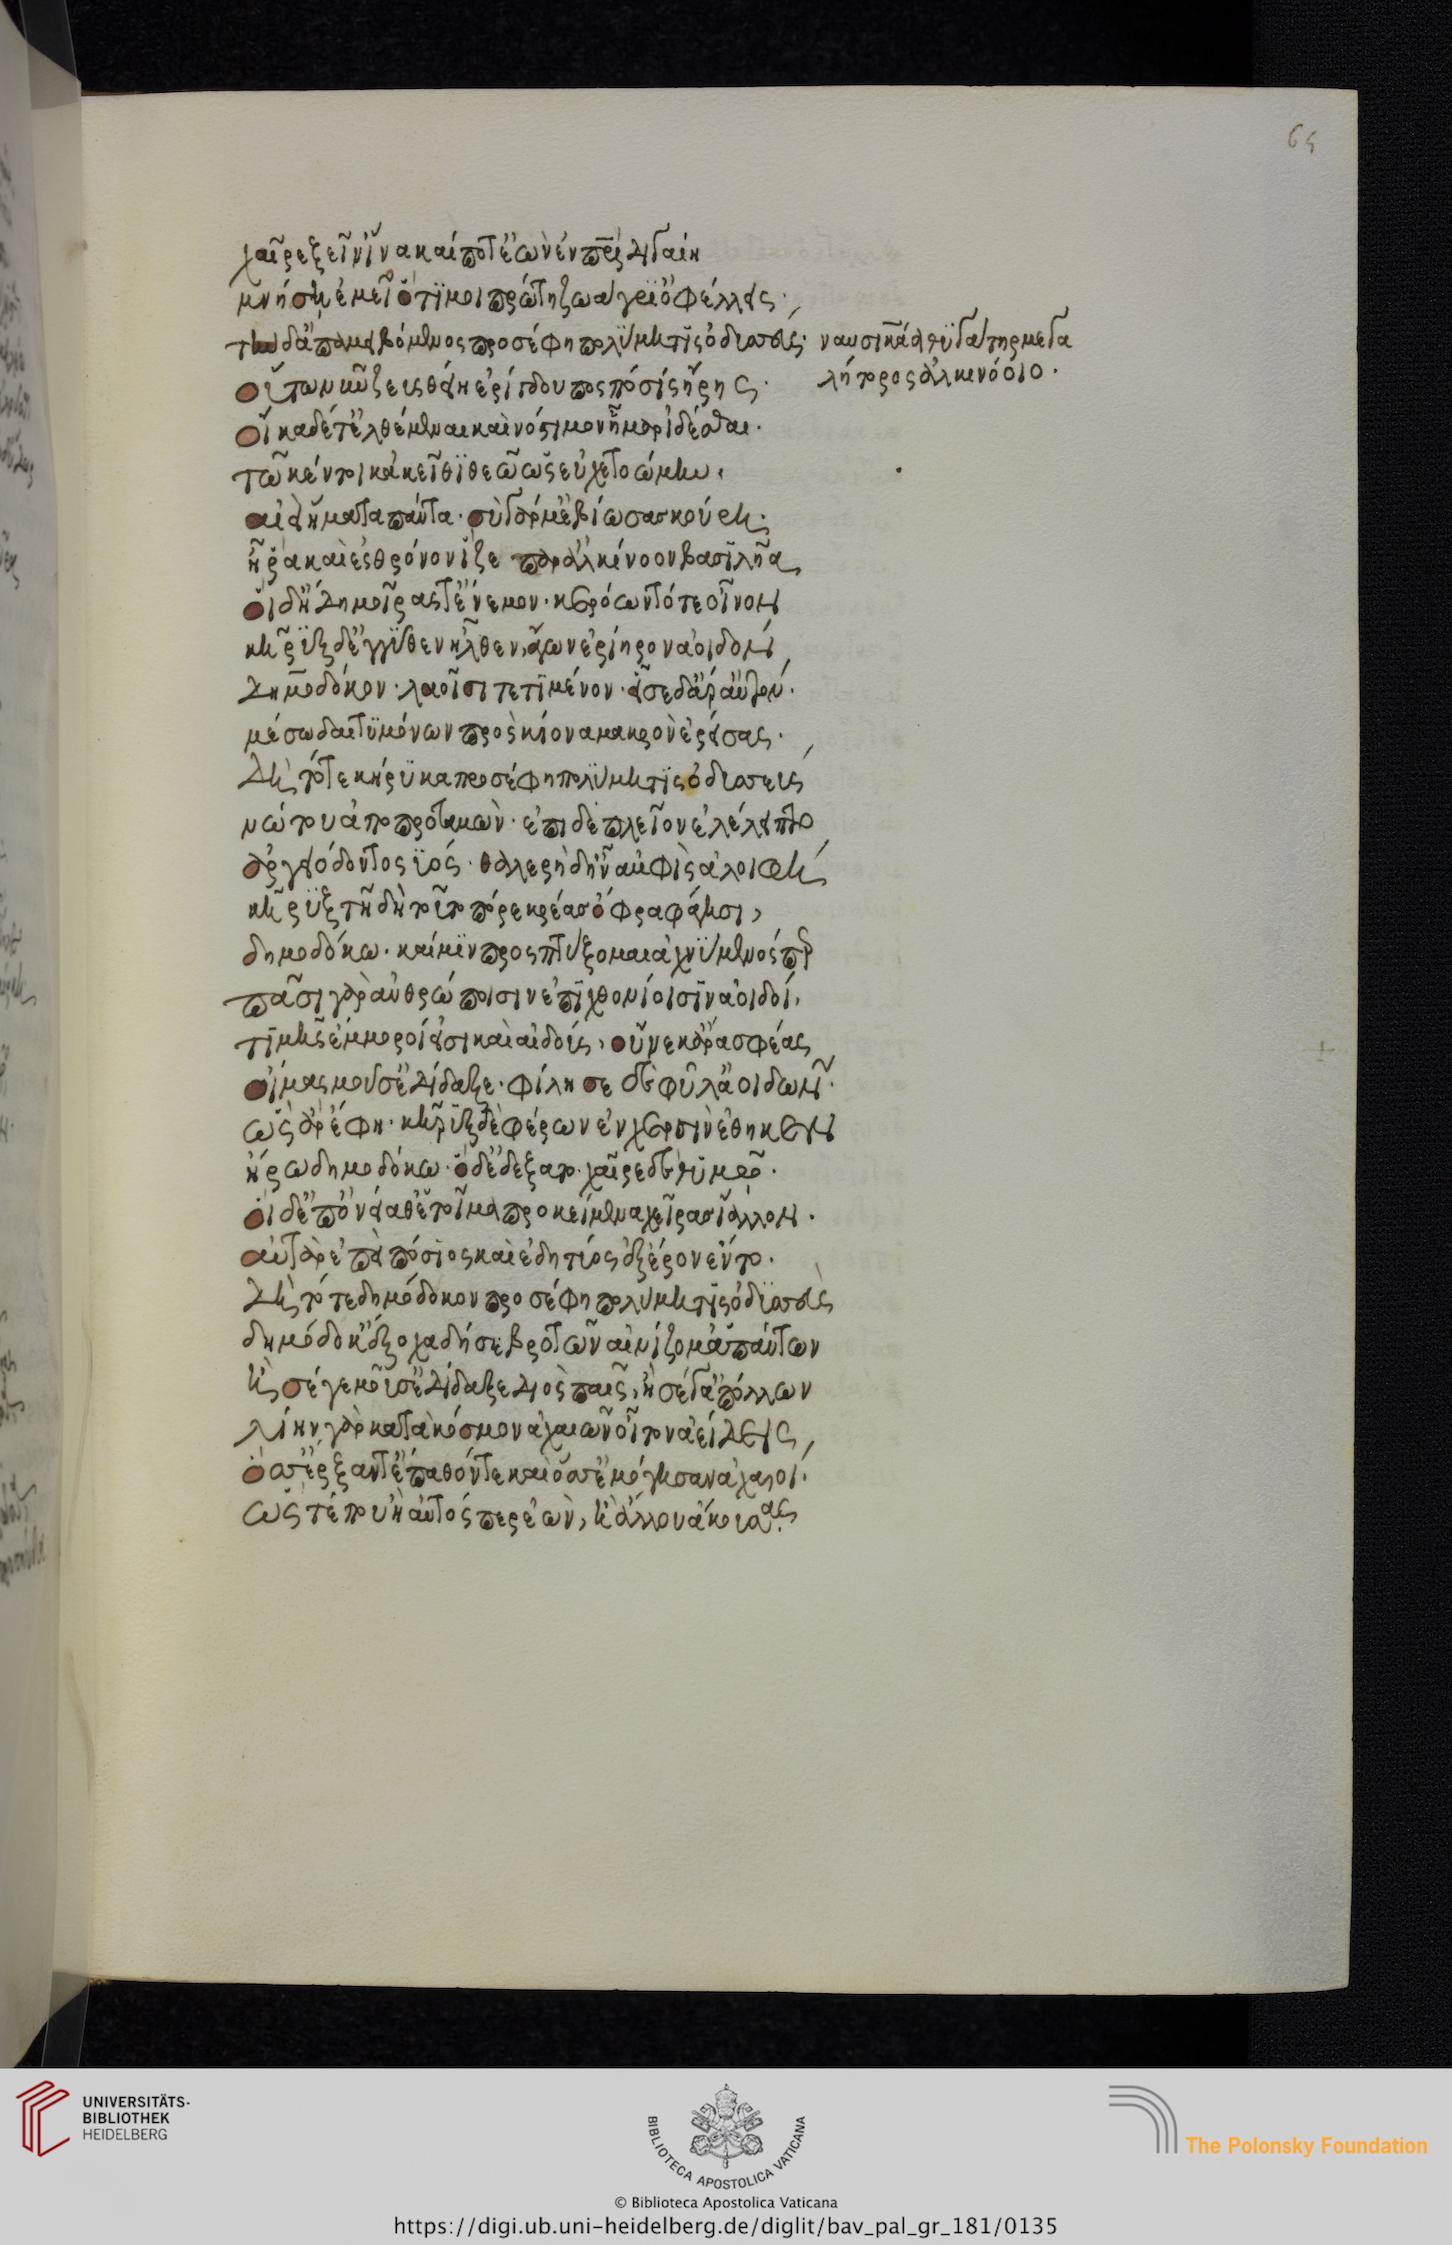 65
χαῖρε ξεῖν ἵνα καί ποτ ἐὼν ἐν πατρίδι γαίη
μνήση ἐμεῖ ὅτί μοι πρώτη ζωάγρι ὀφέλλεις.
τὴν δ ἀπαμειβόμενος προσέφη πολύμητις ὀδυσσεύς. ναυσικάα θύγατηρ μεγα
λήτορος ἀλκινόοιο.
οὕτω νῦν ζεὺς θείη ἐρίγδουπος πόσις ἥρης.
οἴκαδέ τ ἐλθέμεναι καὶ νόστιμον ἦμαρ ἰδέσθαι.
τῶ κέν τοι κἀκεῖθι θεῶ ὣς εὐχετοώμην.
αἰεὶ ἤματα πάντα. σὺ γάρ μ ἐβιώσας κούρη.
ἦ ῥα καὶ ἐς θρόνον ἷζε παρ ἀλκίνοον βασιλῆα,
οἱ δ ἤδη μοίρας τ ἔνεμον. κερόωντό τε οἶνον
κῆρυξ δ ἐγγύθεν ἦλθεν, ἄγων ἐρίηρον ἀοιδόν,
δημόδοκον. λαοῖσι τετιμένον. εἷσε δ ἄρ αὐτόν.
μέσω δαιτυμόνων πρὸς κίονα μακρὸν ἐρείσας.
δὴ τότε κήρυκα προσέφη πολύμητις ὀδυσσεύς
νώτου ἀποπροταμών. ἐπι δὲ πλεῖον ἐλέλειπτο
ἀργιόδοντος ὑός. θαλερὴ δ ἦν ἀμφὶς ἀλοιφή
κῆρυξ τῆ δὴ τοῦτο πόρε κρέας ὄφρα φάγησι,
δημοδόκω. καί μιν προσπτύξομαι ἀχνύμενός περ
πᾶσι γὰρ ἀνθρώποισιν ἐπιχθονίοισιν ἀοιδοί,
τιμῆς ἔμμοροί εἰσι καὶ αἰδοῦς, οὕνεκ ἄρα σφέας
οἴμας μοῦσ ἐδίδαξε. φίλησε δὲ φῦλ ἀοιδῶν.
ὣς ἄρ ἔφη. κῆρυξ δὲ φέρων ἐν χερσὶν ἔθηκεν
ἥρω δημοδόκω. ὁ δ ἐδέξατο. χαῖρε δὲ θυμῶ.
οἱ δ ἐπ ὀνείαθ ἑτοῖμα προκείμενα χεῖρας ἴαλλον.
αὐτὰρ ἐπεὶ πόσιος καὶ ἐδητύος ἐξ ἔρον ἕντο.
δὴ τότε δημόδοκον προσέφη πολύμητις ὀδυσσεύς
δημόδοκ ἔξοχα δή σε βροτῶν αἰνίζομ ἁπάντων
ἢ σέ γε μοῦσ ἐδίδαξε διὸς παῖς, ἢ σέ γ ἀπόλλων
λίην γὰρ κατὰ κόσμον ἀχαιῶν οἶτον ἀείδεις,
ὅσσ ἔρξαν τ ἔπαθόν τε καὶ ὅσσ ἐμόγησαν ἀχαιοί.
ὥς τέ που ἢ αὐτὸς περεὼν, ἢ ἄλλου ἀκούσας.
UNIVERSITÄTS-
BIBLIOTHEK
HEIDELBERG
BIBLIOTECA APOSTOLICA VATICANA
The Polonsky Foundation
© Biblioteca Apostolica Vaticana
https://digi.ub.uni-heidelberg.de/diglit/bav_pal_gr_181/0135